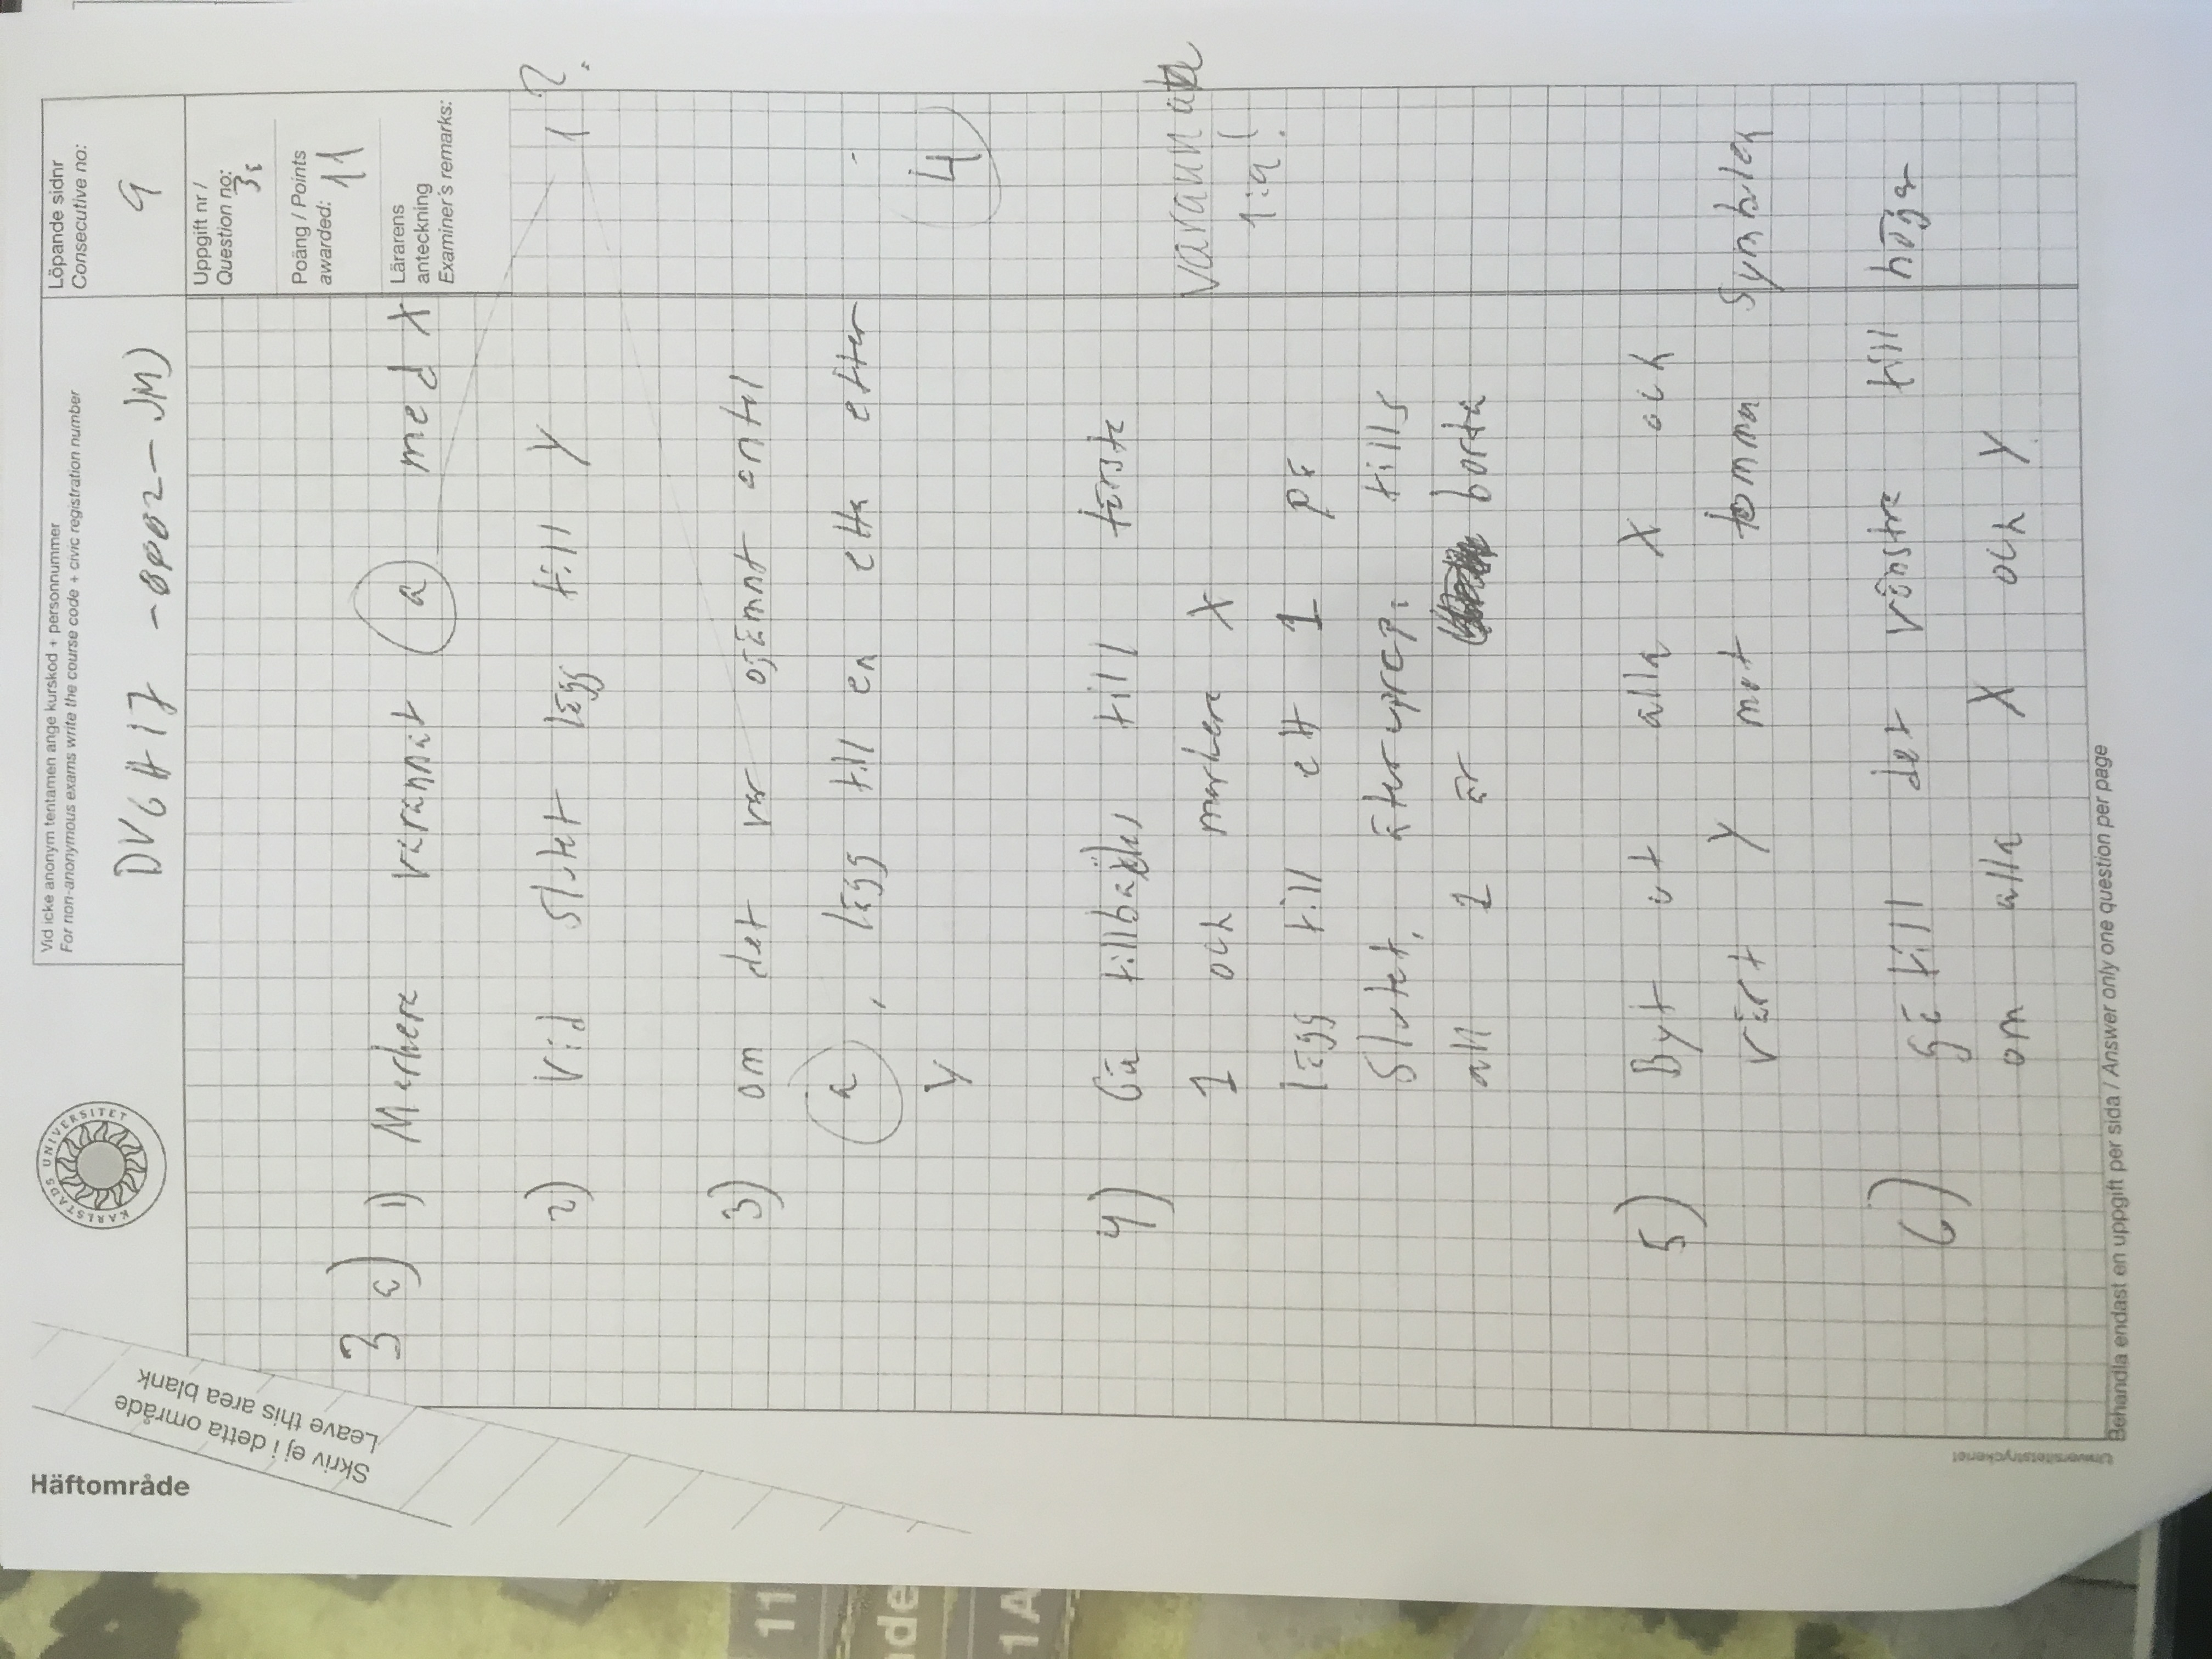 Häftområde
Skriv ej i detta område
Leave this area blank
KARLSTADS UNIVERSITET
Vid icke anonym tentamen ange kurskod + personnummer
For non-anonymous exams write the course code + civic registration number
DVGA17 -0002-JMJ
Löpande sidnr
Consecutive no:
9
Uppgift nr /
Question no:
3
Poäng / Points
awarded:
11
Lärarens
anteckning
Examiner's remarks:
3 a) 1) Markera varannat a med X
2) Vid slutet lägg till Y
1 ?
3) om det var ojämnt antal
a, lägg till en etta efter
Y
4
4) Gå tillbaka till första
1 och markera X
varannan
1:a!
lägg till ett 1 på
slutet, återupprepa tills
all 1 är borta
5) Byt ut alla X och
vårt Y mot tomma symbolen
6) gå till det vänstra till höger
om alla X och Y
Universitetstryckeriet
Behandla endast en uppgift per sida / Answer only one question per page
11
nde
1A